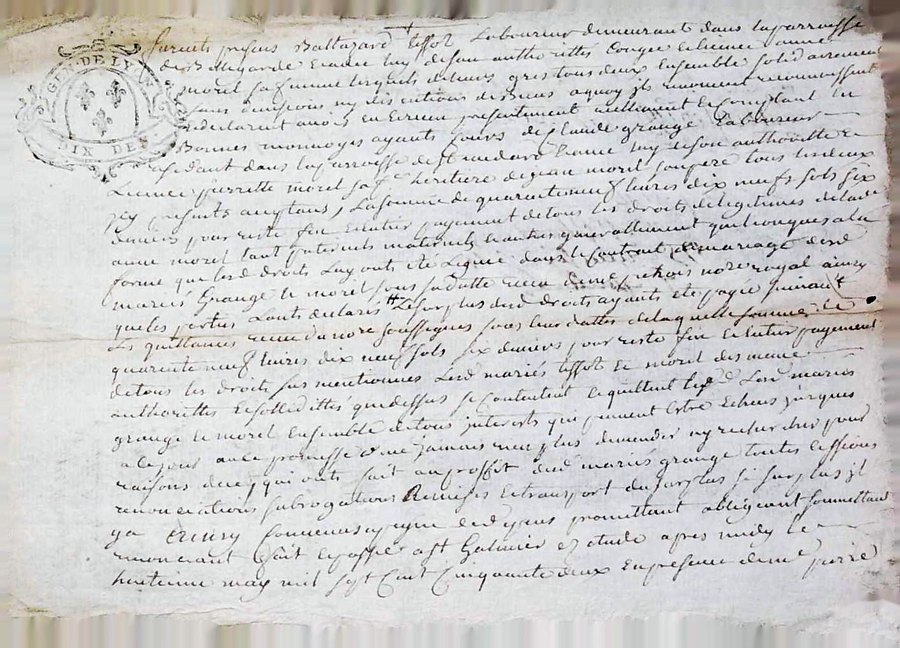 GEN. DE LYON
DIX DE.
furent presens Baltazard tissot Laboureur demeurant dans la parroisse
de Bellegarde Et avec luy de son authorittés Congée et Licence anne
morel sa femme lesquels de leurs grés tous deux Ensemble solidairement
sans division ny discutions de biens aquoy ils renoncent reconnoissent
et declarent avoir eu Et receu presentement reellement Et Comptant En
Bonnes monnoyes ayants Cours de Claude grange Laboureur
residant dans la parroisse de st medard Et avec luy de son authoritté Et
Licence pierrette morel sa fe heritiere de jean morel son pere tous les deux
jcy presents acceptans, La somme de quarante neuf livres dix neufs sols six
deniers pour reste fin Et entier payement de tous les droits de legitimes de laditte
anne morel tant paternels maternels Et autres generallement quelconques a la
forme que lesd droits Luy ont été Legués dans le Contrat de mariage desd
mariés Grange et morel sous sa datte receu de me notre royal
que les parties ont declarés Le surplus desd droits ayants eté payé suivant
Les quittances receu du notre soussignés sous leurs dattes de laquelle somme de
quarante neuf livres dix neuf sols six deniers pour reste fin Et entier payement
de tous les droits sus mentionnes Lesd mariés tissot et morel des meme
authorittés Et solidittés que dessus se contentent Et quittent Lesd mariés
grange et morel Ensemble de tous jnterets qui peuvent Estre Echeus jusques
a ce jour avec promesse de ne jamais rien plus demander ny rechercher pour
raisons de ce, qui ont fait au proffit desd mariés grange toutes Cessions
renonciations subrogations Remises Et transport du surplus si surplus jl
y a Ainsy Convenus promettant obligeant soummettant
renonceant fait Et passé a st Galmier Et etude apres midy le
huitieme may mil sept Cent Cinquante deux En presence de me pierre